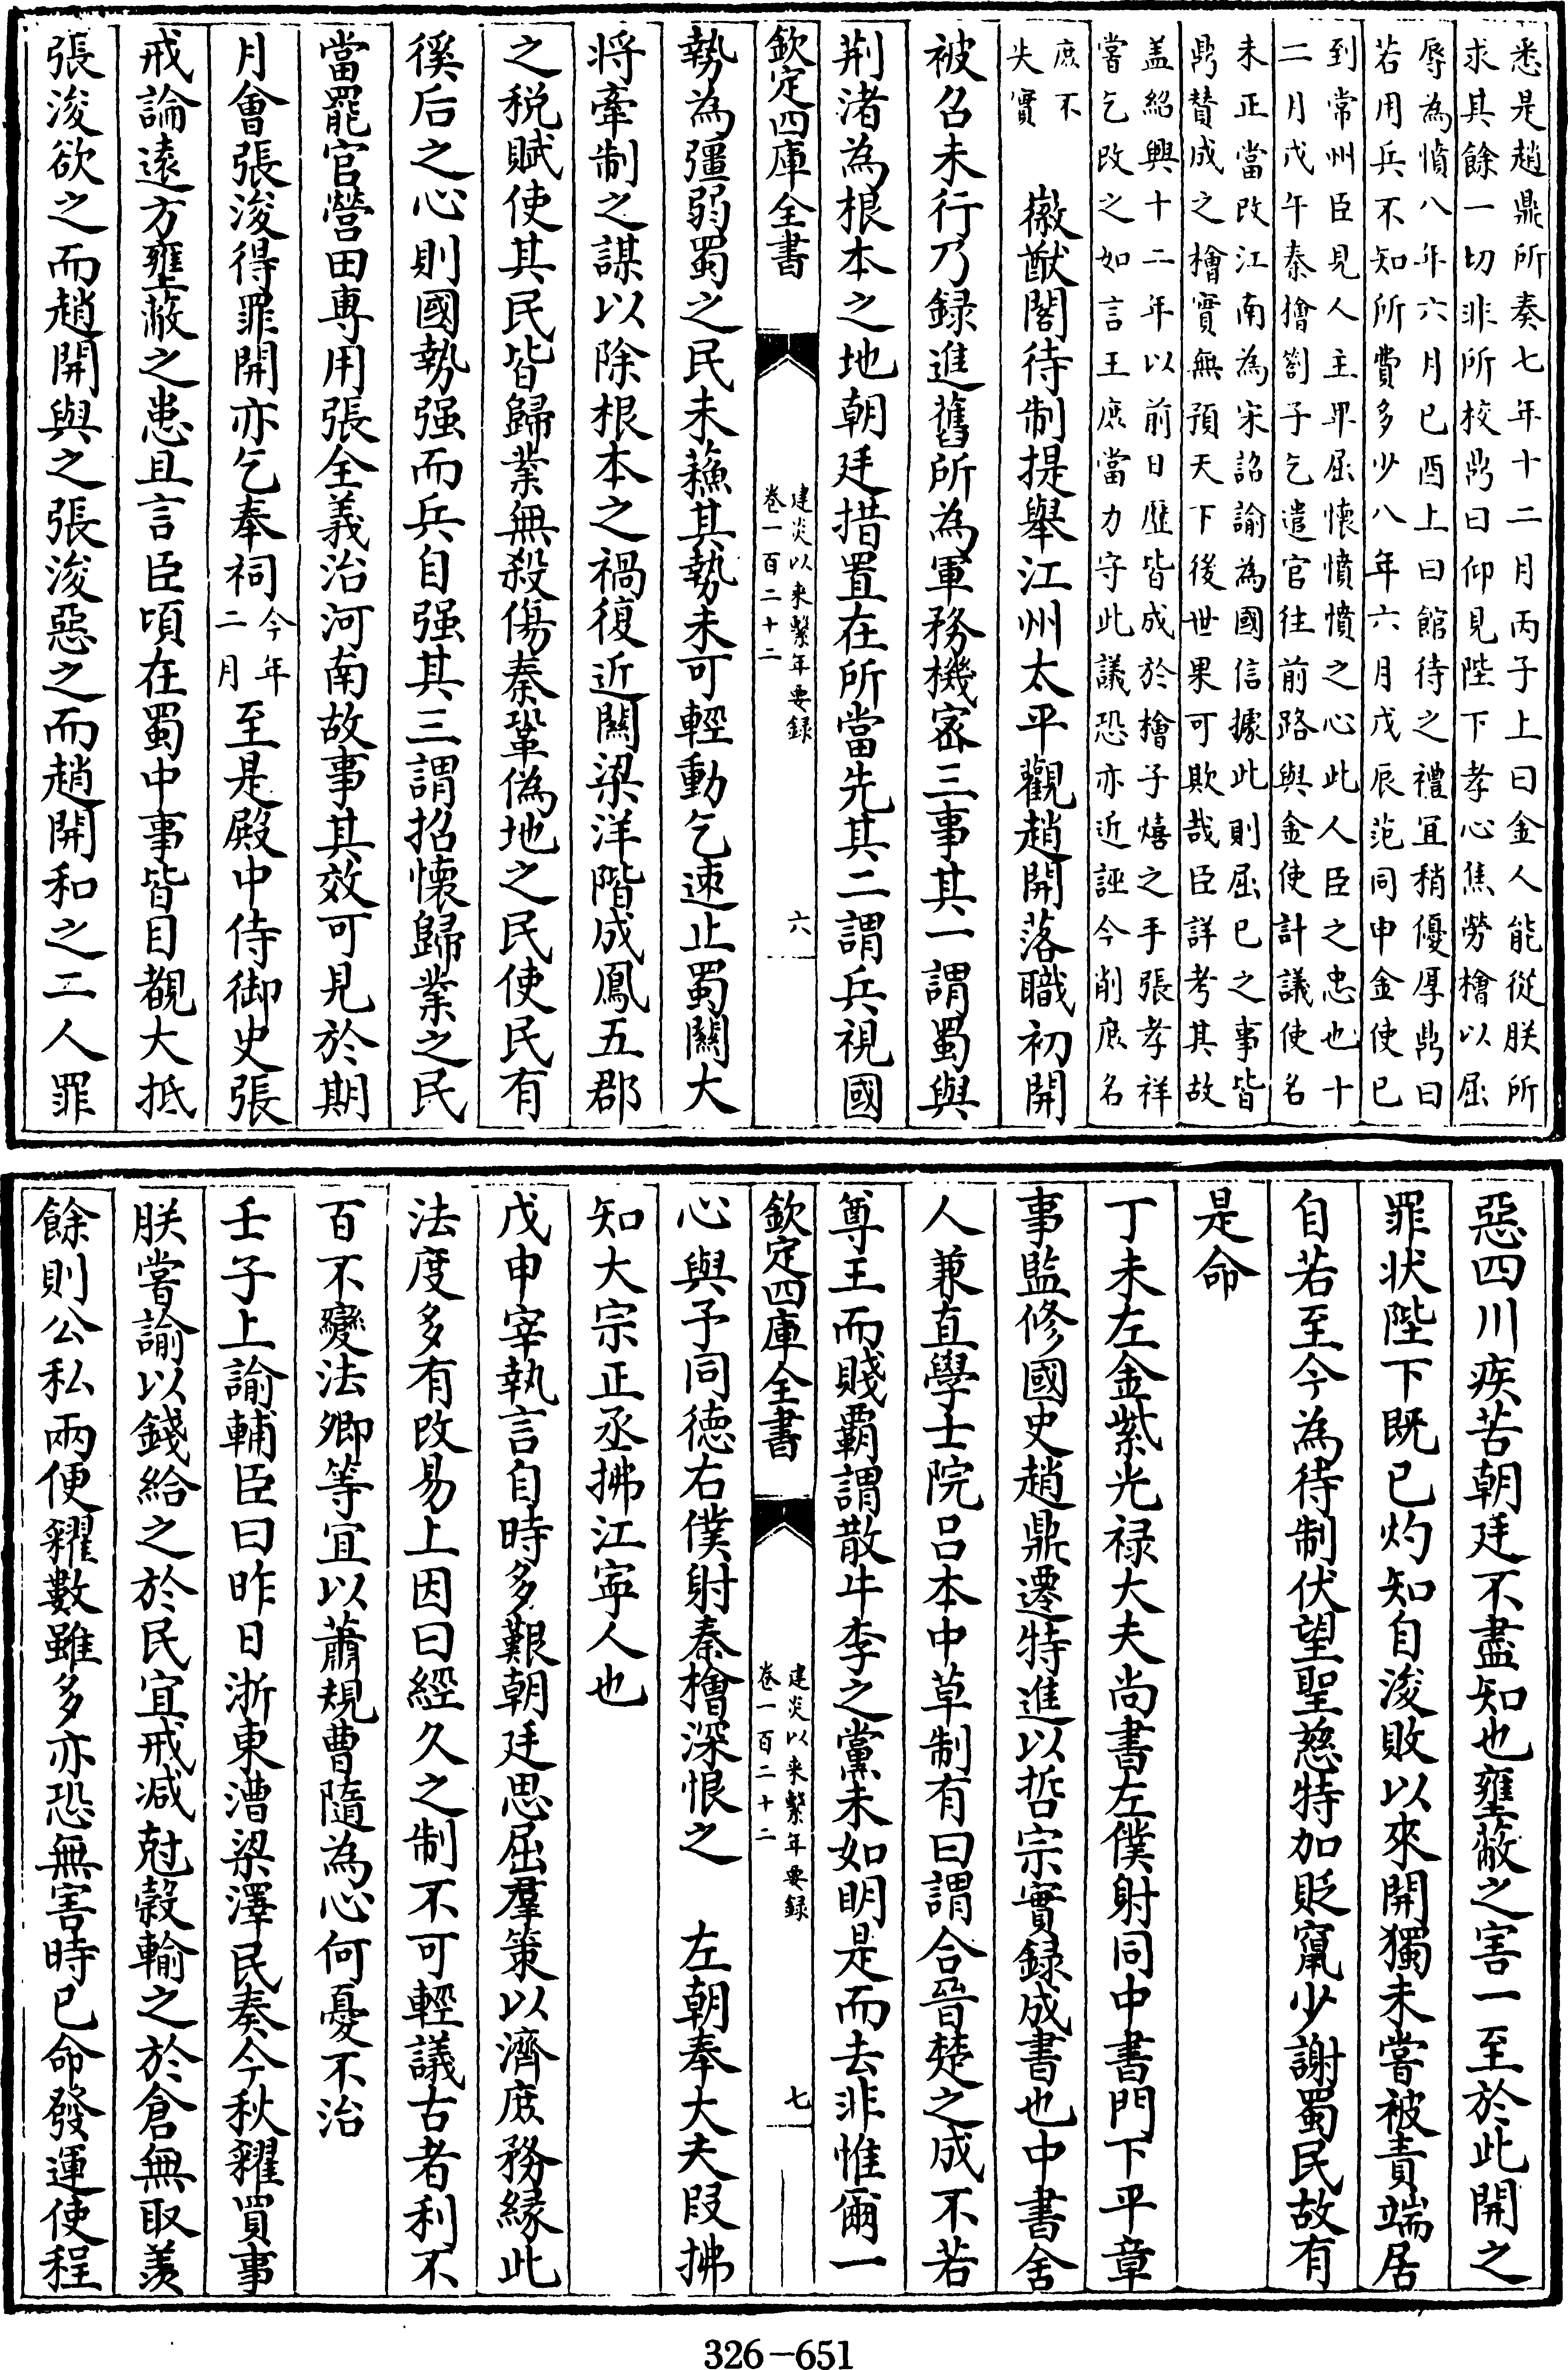 悉是趙鼎所奏七年十二月丙子上曰金人能從朕所
求其餘一切非所校鼎曰仰見陛下孝心焦勞檜以屈
辱為憤八年六月己酉上曰館待之禮宜稍優厚鼎曰
若用兵不知所費多少八年六月戊辰范同申金使已
到常州臣見人主卑屈懷憤憤之心此人臣之忠也十
二月戊午秦檜劄子乞遣官往前路與金使計議使名
未正當改江南為宋詔諭為國信據此則屈已之事皆
鼎賛成之檜實無預天下後世果可欺哉臣詳考其故
盖紹興十二年以前日厯皆成於檜子熺之手張孝祥
嘗乞改之如言王庶當力守此議恐亦近誣今削庶名
庶不
失實
徽猷閣待制提舉江州太平觀趙開落職初開
被召未行乃録進舊所為軍務機宻三事其一謂蜀與
荆渚為根本之地朝廷措置在所當先其二謂兵視國
欽定四庫全書
建炎以來繫年要録
卷一百二十二
六
勢為彊弱蜀之民未蘓其勢未可輕動乞速止蜀關大
将牽制之謀以除根本之禍復近關梁洋階成鳳五郡
之税賦使其民皆歸業無殺傷秦鞏偽地之民使民有
徯后之心則國勢强而兵自强其三謂招懷歸業之民
當罷官營田專用張全義治河南故事其效可見於期
月會張浚得罪開亦乞奉祠
今年
二月
至是殿中侍御史張
戒論遠方壅蔽之患且言臣頃在蜀中事皆目覩大抵
張浚欲之而趙開與之張浚惡之而趙開和之二人罪
惡四川疾苦朝廷不盡知也壅蔽之害一至於此開之
罪状陛下既已灼知自浚敗以來開獨未嘗被責端居
自若至今為待制伏望聖慈特加貶竄少謝蜀民故有
是命
丁未左金紫光禄大夫尚書左僕射同中書門下平章
事監修國史趙鼎遷特進以哲宗實録成書也中書舍
人兼直學士院吕本中草制有曰謂合晉楚之成不若
尊王而賤霸謂散牛李之黨未如明是而去非惟爾一
欽定四庫全書
建炎以來繫年要録
卷一百二十二
七
心與予同德右僕射秦檜深恨之
左朝奉大夫段拂
知大宗正丞拂江寕人也
戊申宰執言自時多艱朝廷思屈羣策以濟庶務縁此
法度多有改易上因曰經久之制不可輕議古者利不
百不變法卿等宜以蕭規曹隨為心何憂不治
壬子上諭輔臣曰昨日浙東漕梁澤民奏今秋糴買事
朕嘗諭以錢給之於民宜戒减尅榖輸之於倉無取羡
餘則公私兩便糴數雖多亦恐無害時已命發運使程
326-651